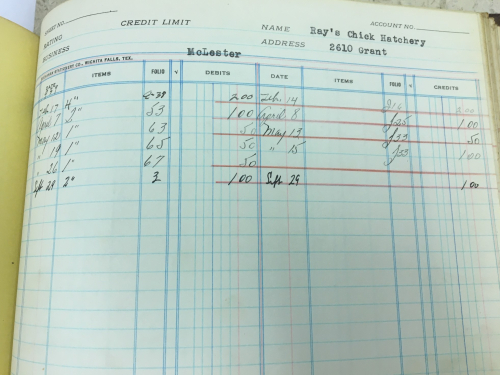 CREDIT LIMIT
ACCOUNT NO.
RATING
BUSINESS
NAME Ray's Chick Hatchery
ADDRESS 2610 Grant
McLester
WICHITA FALLS, TEX.
ITEMS FOLIO √ DEBITS DATE ITEMS FOLIO √ CREDITS
4" 38 200 Feb. 14 200
April 7 2" 53 100 April 8 J25 100
May 12 1" 63 50 May 13 J33 50
" 19 1" 65 50 " 15 J33 100
" 26 1" 67 50
Sept 28 2" 3 1.00 Sept 29 1.00